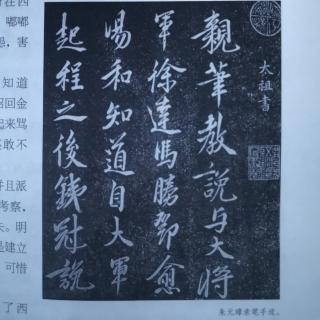 太祖書
親筆教說与大将
軍徐達馮勝鄧愈
湯和知道自大軍
起程之後錢冠說
朱元璋亲笔手迹。
在西
嘟嘟
，害
知道
回金
起来骂
敢不
并且派
考察，
。明
是建立
可惜
了西